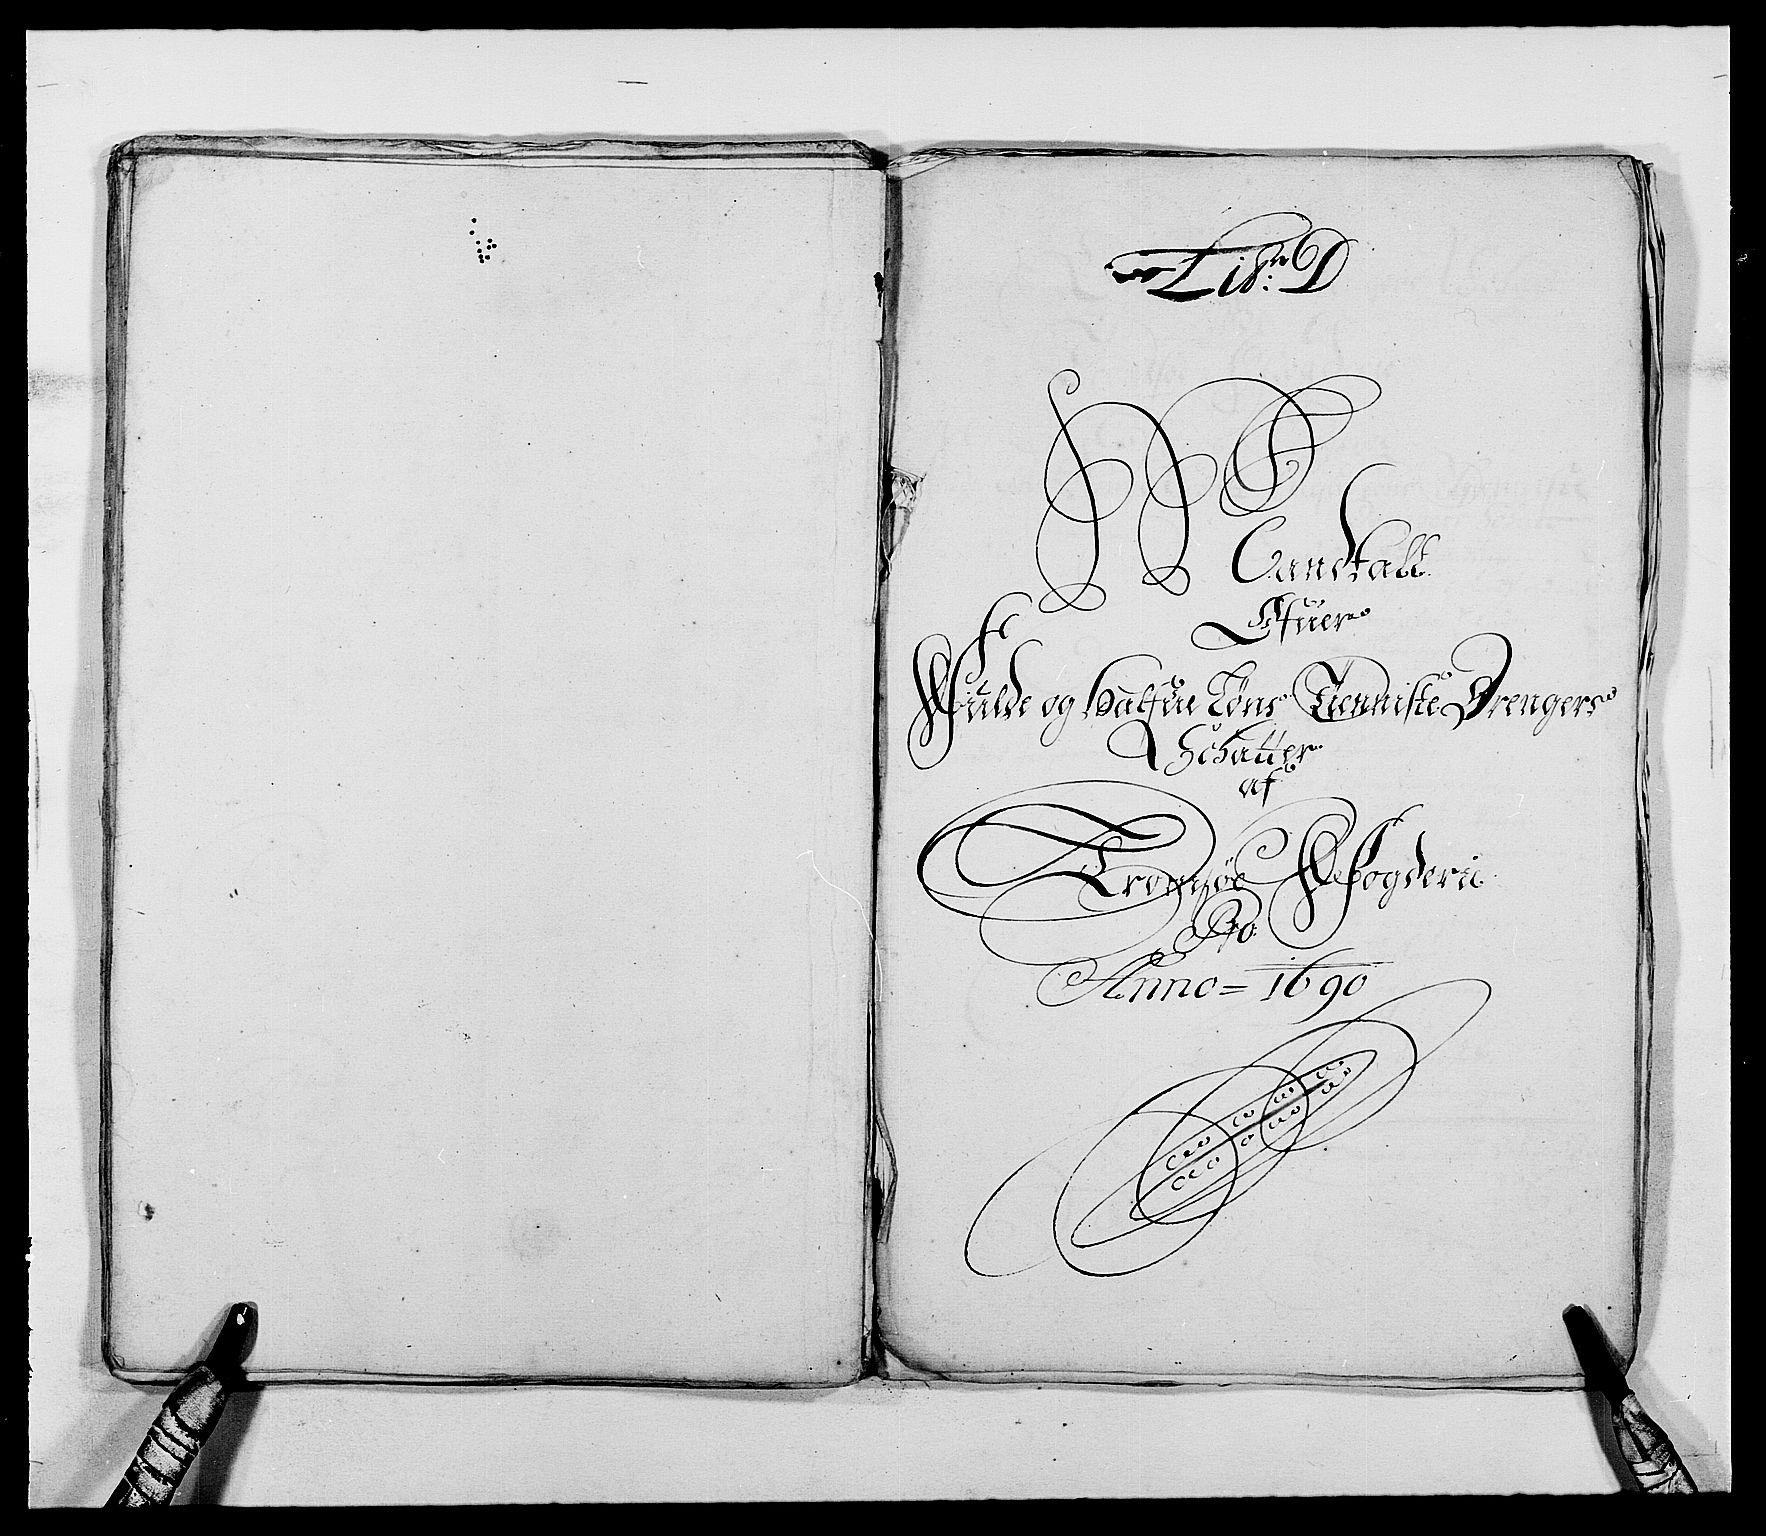 Lit: D
Mandtall
Ofuer
Fulde og Halfue Løns Tienniste Drengers
Schatter
af
Tromsøe Fogderie
Pro
Anno = 1690